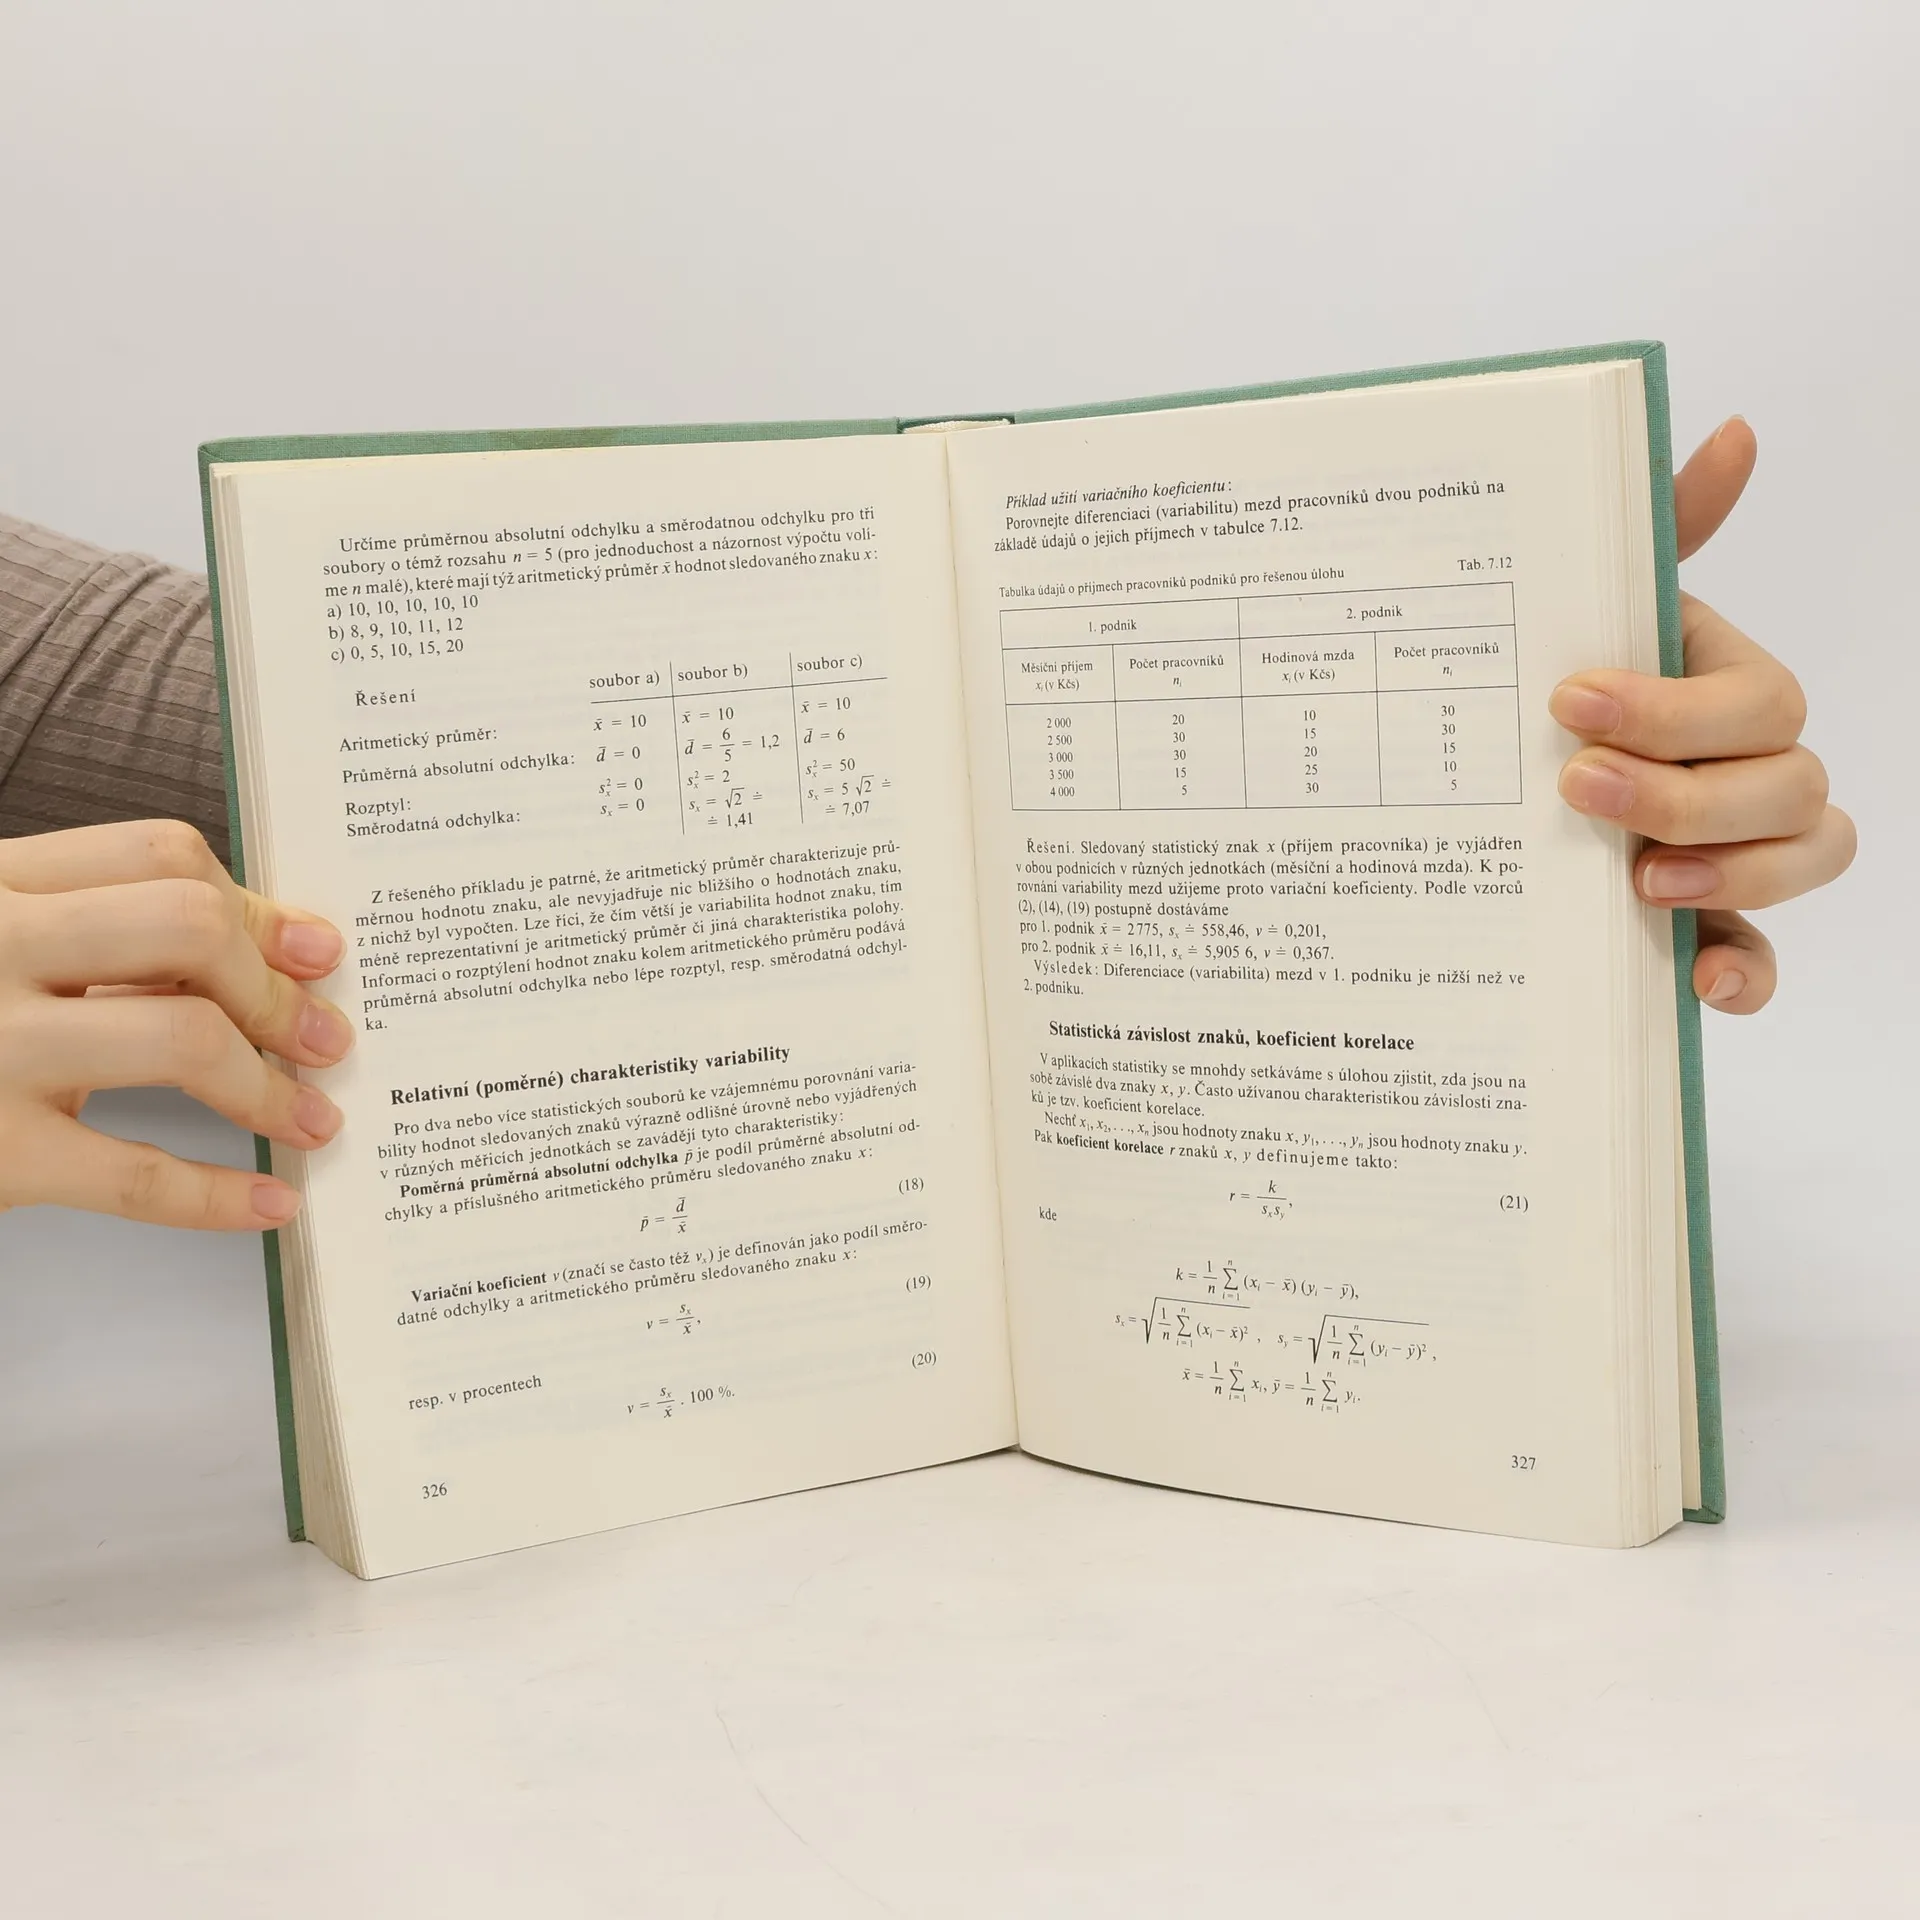 Určíme průměrnou absolutní odchylku a směrodatnou odchylku pro tři
soubory o témž rozsahu n = 5 (pro jednoduchost a názornost výpočtu volí-
me n malé), které mají týž aritmetický průměr x̄ hodnot sledovaného znaku x:
a) 10, 10, 10, 10, 10
b) 8, 9, 10, 11, 12
c) 0, 5, 10, 15, 20
Řešení soubor a) soubor b) soubor c)
Aritmetický průměr: x̄ = 10 x̄ = 10 x̄ = 10
Průměrná absolutní odchylka: d̄ = 0 d̄ = 6/5 = 1,2 d̄ = 6
Rozptyl: sₓ² = 0 sₓ² = 2 sₓ² = 50
Směrodatná odchylka: sₓ = 0 sₓ = √2 ≐ sₓ = 5 √2 ≐
≐ 1,41 ≐ 7,07
Z řešeného příkladu je patrné, že aritmetický průměr charakterizuje prů-
měrnou hodnotu znaku, ale nevyjadřuje nic bližšího o hodnotách znaku,
z nichž byl vypočten. Lze říci, že čím větší je variabilita hodnot znaku, tím
méně reprezentativní je aritmetický průměr či jiná charakteristika polohy.
Informaci o rozptýlení hodnot znaku kolem aritmetického průměru podává
průměrná absolutní odchylka nebo lépe rozptyl, resp. směrodatná odchyl-
ka.
Relativní (poměrné) charakteristiky variability
Pro dva nebo více statistických souborů ke vzájemnému porovnání varia-
bility hodnot sledovaných znaků výrazně odlišné úrovně nebo vyjádřených
v různých měřicích jednotkách se zavádějí tyto charakteristiky:
Poměrná průměrná absolutní odchylka p̄ je podíl průměrné absolutní od-
chylky a příslušného aritmetického průměru sledovaného znaku x:
p̄ = d̄/x̄ (18)
Variační koeficient v (značí se často též vₓ) je definován jako podíl směro-
datné odchylky a aritmetického průměru sledovaného znaku x:
v = sₓ/x̄, (19)
resp. v procentech
v = sₓ/x̄ . 100 %. (20)
326
Příklad užití variačního koeficientu:
Porovnejte diferenciaci (variabilitu) mezd pracovníků dvou podniků na
základě údajů o jejich příjmech v tabulce 7.12.
Tabulka údajů o příjmech pracovníků podniků pro řešenou úlohu Tab. 7.12
1. podnik 2. podnik
Měsíční příjem Počet pracovníků Hodinová mzda Počet pracovníků
xᵢ (v Kčs) nᵢ xᵢ (v Kčs) nᵢ
2 000 20 10 30
2 500 30 15 30
3 000 30 20 15
3 500 15 25 10
4 000 5 30 5
Řešení. Sledovaný statistický znak x (příjem pracovníka) je vyjádřen
v obou podnicích v různých jednotkách (měsíční a hodinová mzda). K po-
rovnání variability mezd užijeme proto variační koeficienty. Podle vzorců
(2), (14), (19) postupně dostáváme
pro 1. podnik x̄ = 2775, sₓ ≐ 558,46, v ≐ 0,201,
pro 2. podnik x̄ ≐ 16,11, sₓ ≐ 5,905 6, v ≐ 0,367.
Výsledek: Diferenciace (variabilita) mezd v 1. podniku je nižší než ve
2. podniku.
Statistická závislost znaků, koeficient korelace
V aplikacích statistiky se mnohdy setkáváme s úlohou zjistit, zda jsou na
sobě závislé dva znaky x, y. Často užívanou charakteristikou závislosti zna-
ků je tzv. koeficient korelace.
Nechť x₁, x₂, . . ., xₙ jsou hodnoty znaku x, y₁, . . ., yₙ jsou hodnoty znaku y.
Pak koeficient korelace r znaků x, y definujeme takto:
r = k/(sₓsᵧ), (21)
kde
k = 1/n Σᵢ₌₁ⁿ (xᵢ − x̄) (yᵢ − ȳ),
sₓ = √(1/n Σᵢ₌₁ⁿ (xᵢ − x̄)²) , sᵧ = √(1/n Σᵢ₌₁ⁿ (yᵢ − ȳ)²) ,
x̄ = 1/n Σᵢ₌₁ⁿ xᵢ, ȳ = 1/n Σᵢ₌₁ⁿ yᵢ.
327